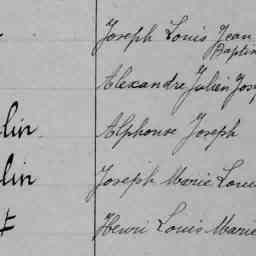 Joseph Louis Jean
Baptis
Alexandre Julien Jos
lin Alphonse Joseph
lin Joseph Marie Loui
Henri Louis Marie